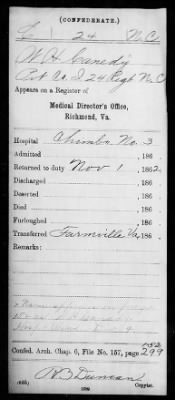 (CONFEDERATE.)
C 24 N.C.
W H Canedy
Pvt Co. I 24 Regt N.C.
Appears on a Register of
Medical Director's Office,
Richmond, Va.
Hospital Chimbo No. 3
Admitted , 186
Returned to duty Nov 1 , 1862
Discharged , 186
Deserted , 186
Died , 186
Furloughed , 186
Transferred Farmville Va , 186
Remarks:
Confed. Arch. Chap. 6, File No. 157, page 299
R B Duncan
Copyist.